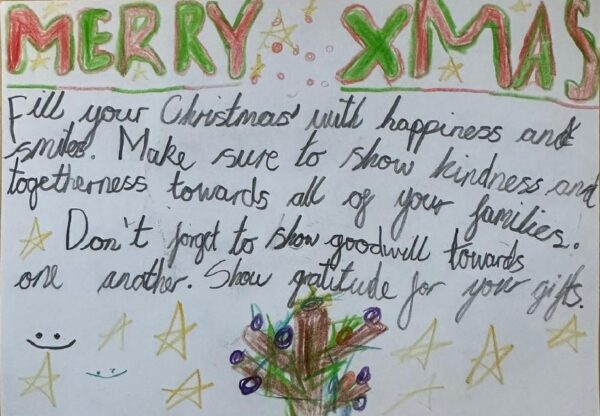 MERRY XMAS
Fill your Christmas with happiness and
smiles. Make sure to show kindness and
togetherness towards all of your families.
Don't forget to show goodwill towards
one another. Show gratitude for your gifts.